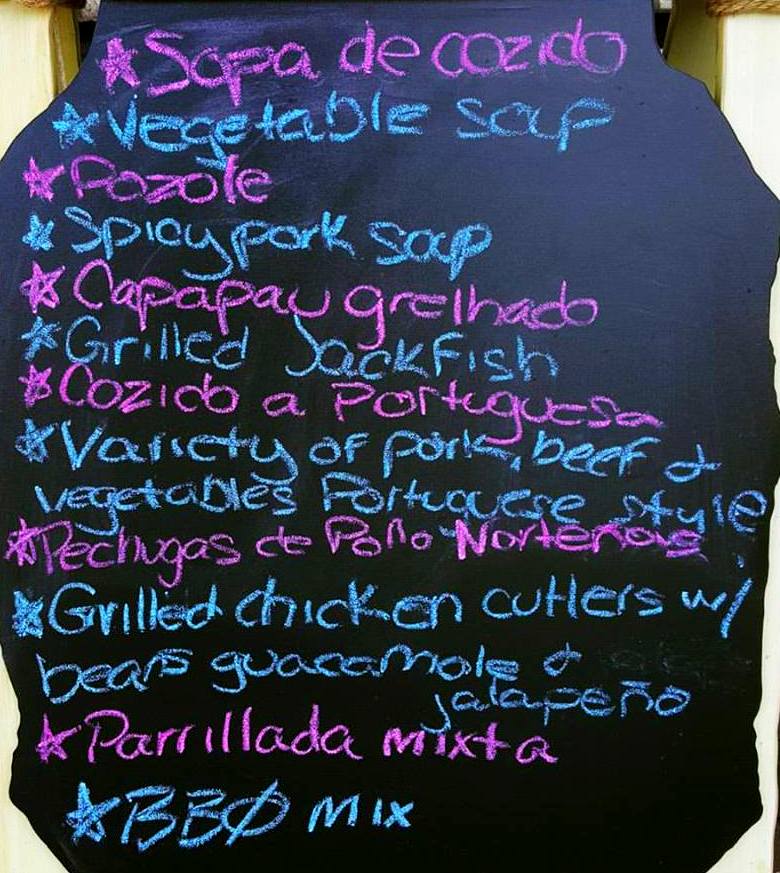 ★Sopa de cozido
★Vegetable soup
★Pozole
★Spicy pork soup
★Capapau grelhado
★Grilled Jackfish
★Cozido a Portuguesa
★Variety of pork, beef &
vegetables Portuguese style
★Pechugas de Pollo Norteñas
★Grilled chicken cutlers w/
beans guacamole &
jalapeño
★Parrillada mixta
★BBQ mix